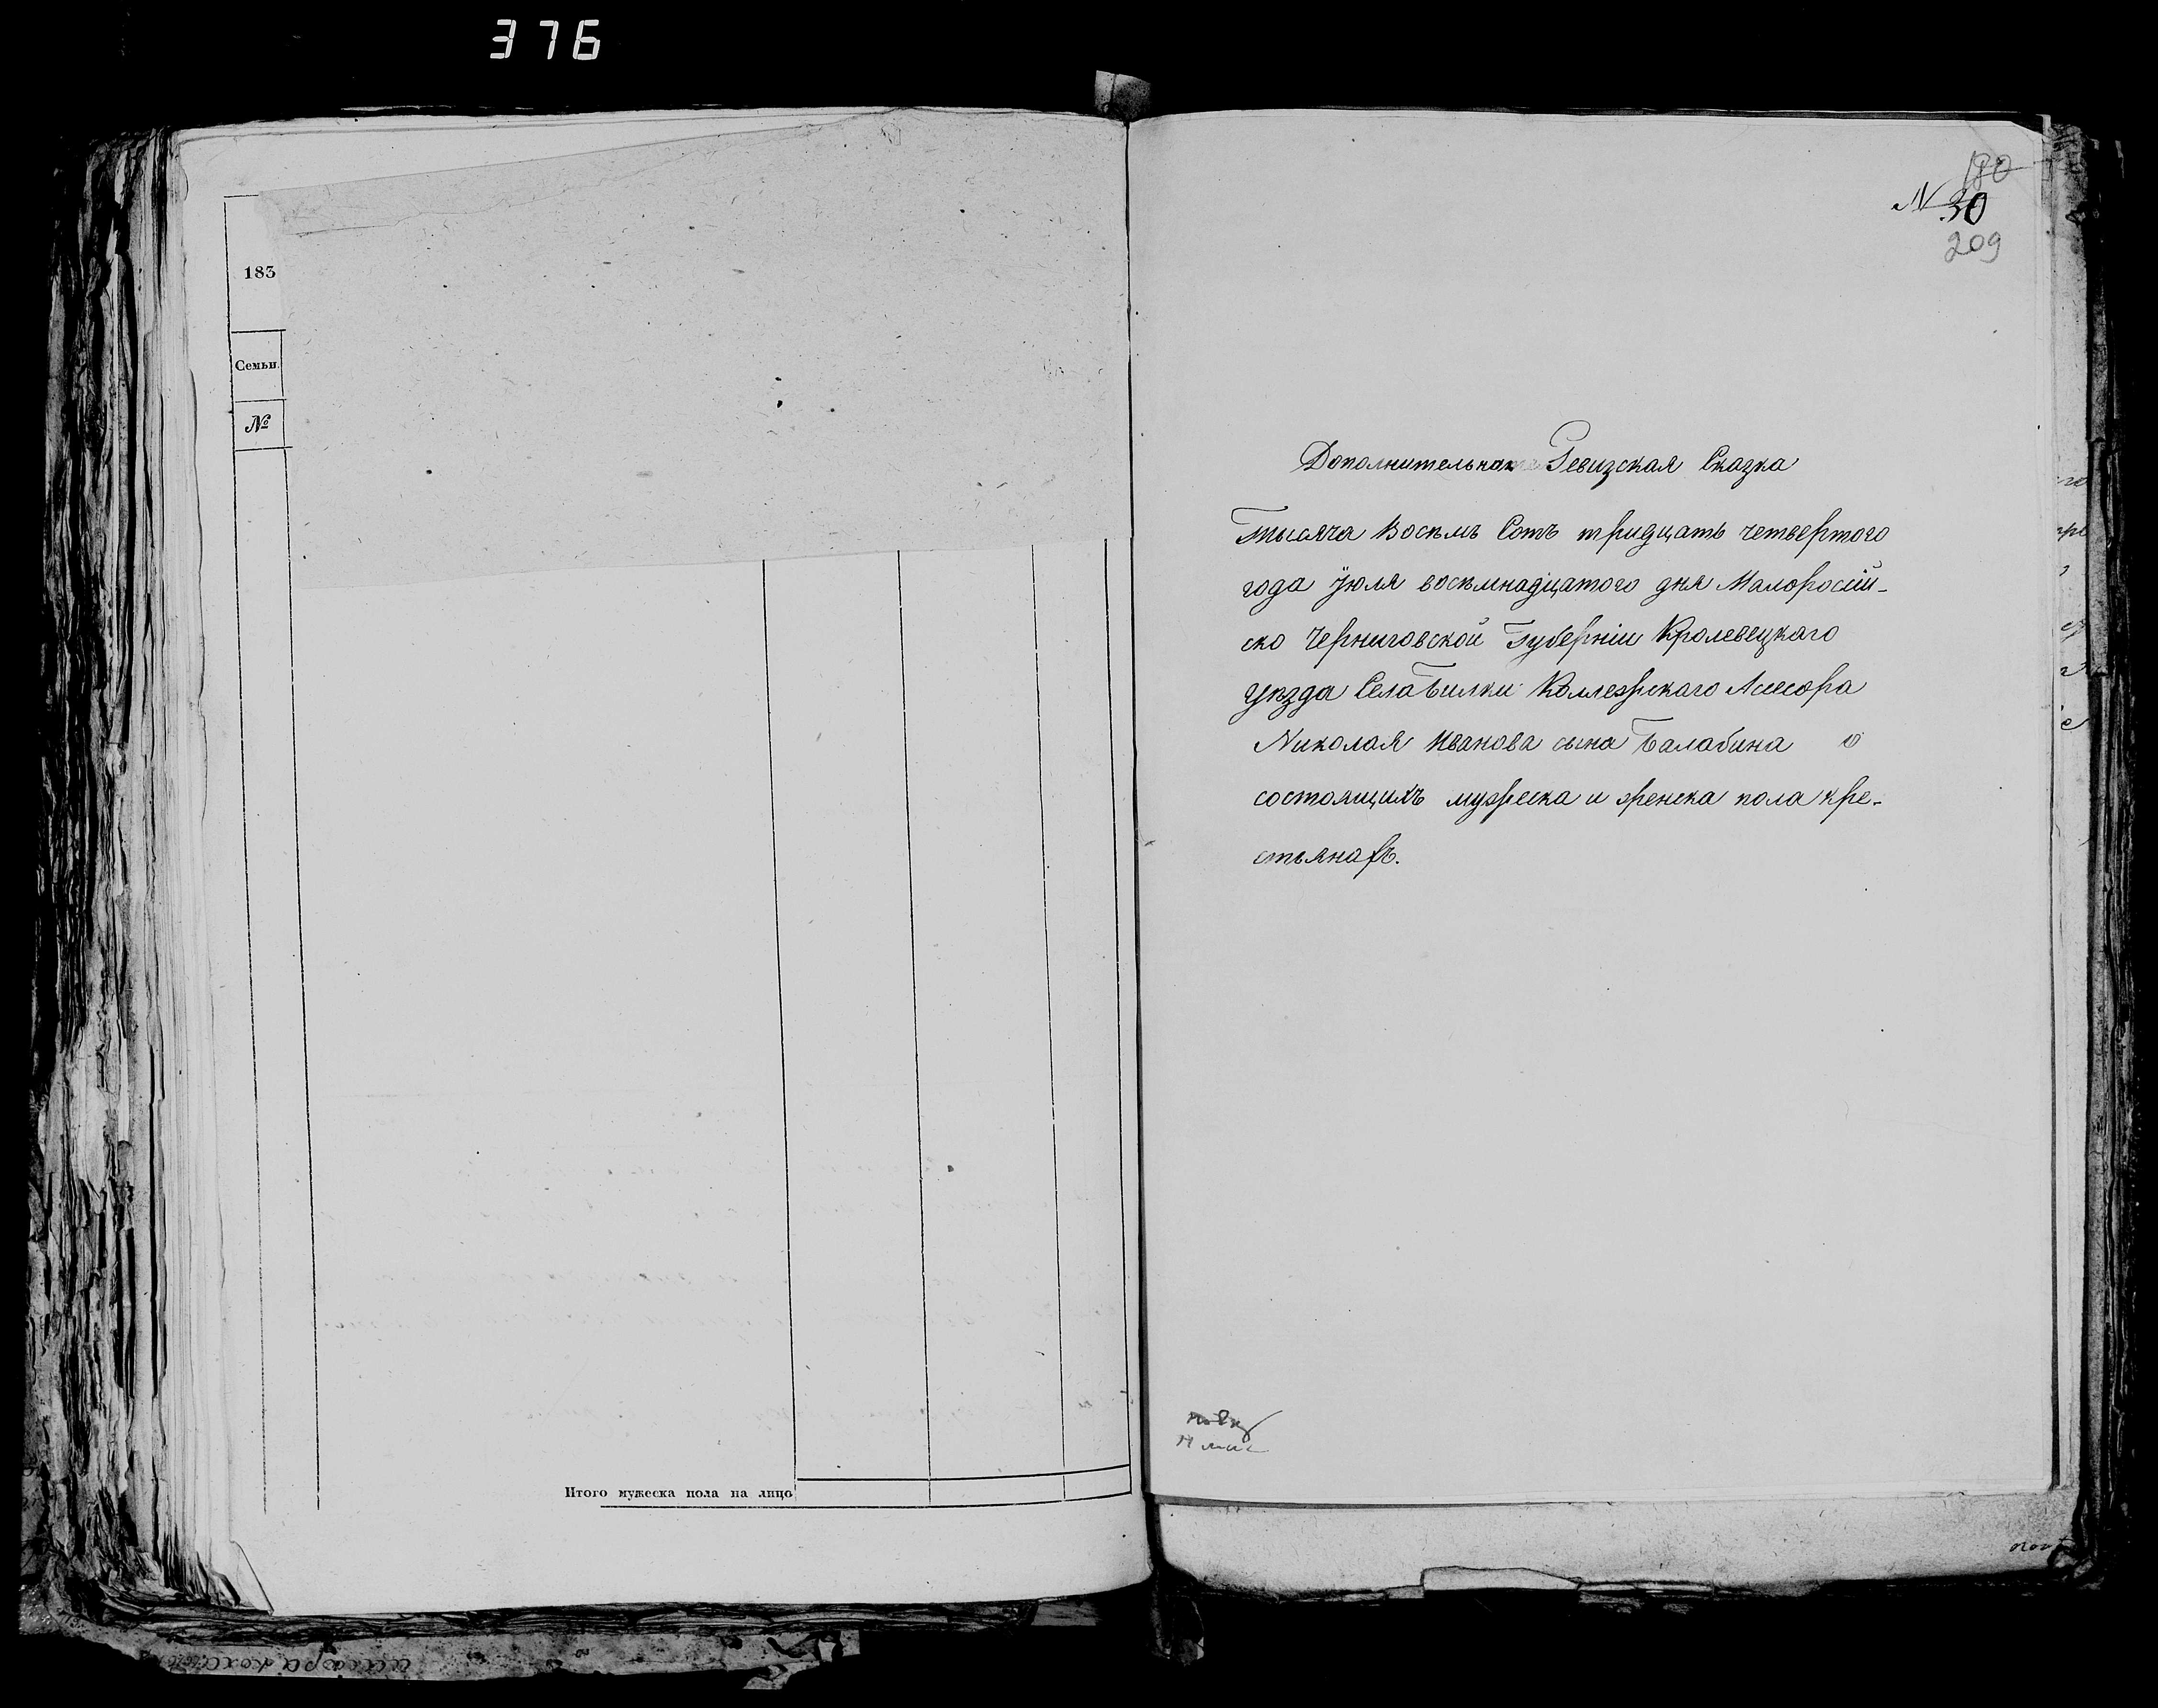 376
183
Семьи.
№
Итого мужеска пола на лицо
180
N 30
209
Дополнительная Ревизская Сказка
Тысяча Восемь Сотъ тридцать четвертого
года Июля восемнадцатого дня Малоросій-
ско Черниговской Губерніи Кролевецкаго
уезда Села Билки Коллежскаго Асесора
Николая Иванова сына Балабина о
состоящихъ мужеска и женска пола кре-
стьянахъ.